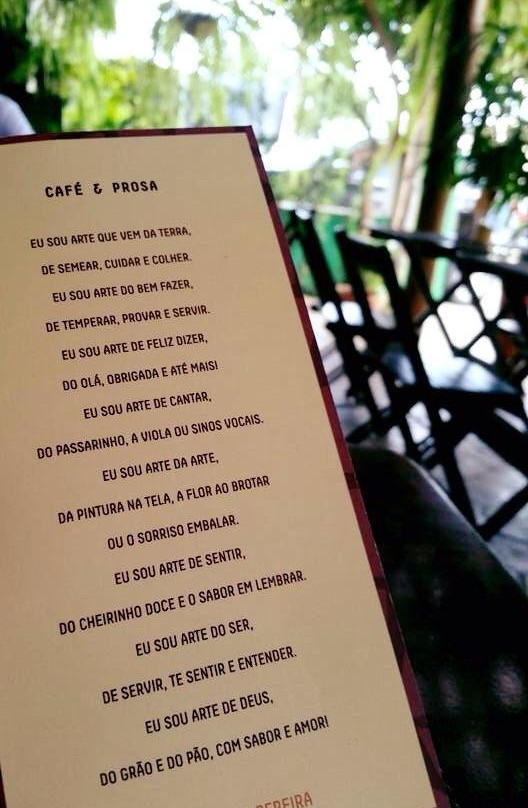 CAFÉ & PROSA
EU SOU ARTE QUE VEM DA TERRA,
DE SEMEAR, CUIDAR E COLHER.
EU SOU ARTE DO BEM FAZER,
DE TEMPERAR, PROVAR E SERVIR.
EU SOU ARTE DE FELIZ DIZER,
DO OLÁ, OBRIGADA E ATÉ MAIS!
EU SOU ARTE DE CANTAR,
DO PASSARINHO, A VIOLA OU SINOS VOCAIS.
EU SOU ARTE DA ARTE,
DA PINTURA NA TELA, A FLOR AO BROTAR
OU O SORRISO EMBALAR.
EU SOU ARTE DE SENTIR,
DO CHEIRINHO DOCE E O SABOR EM LEMBRAR.
EU SOU ARTE DO SER,
DE SERVIR, TE SENTIR E ENTENDER.
EU SOU ARTE DE DEUS,
DO GRÃO E DO PÃO, COM SABOR E AMOR!
PEREIRA